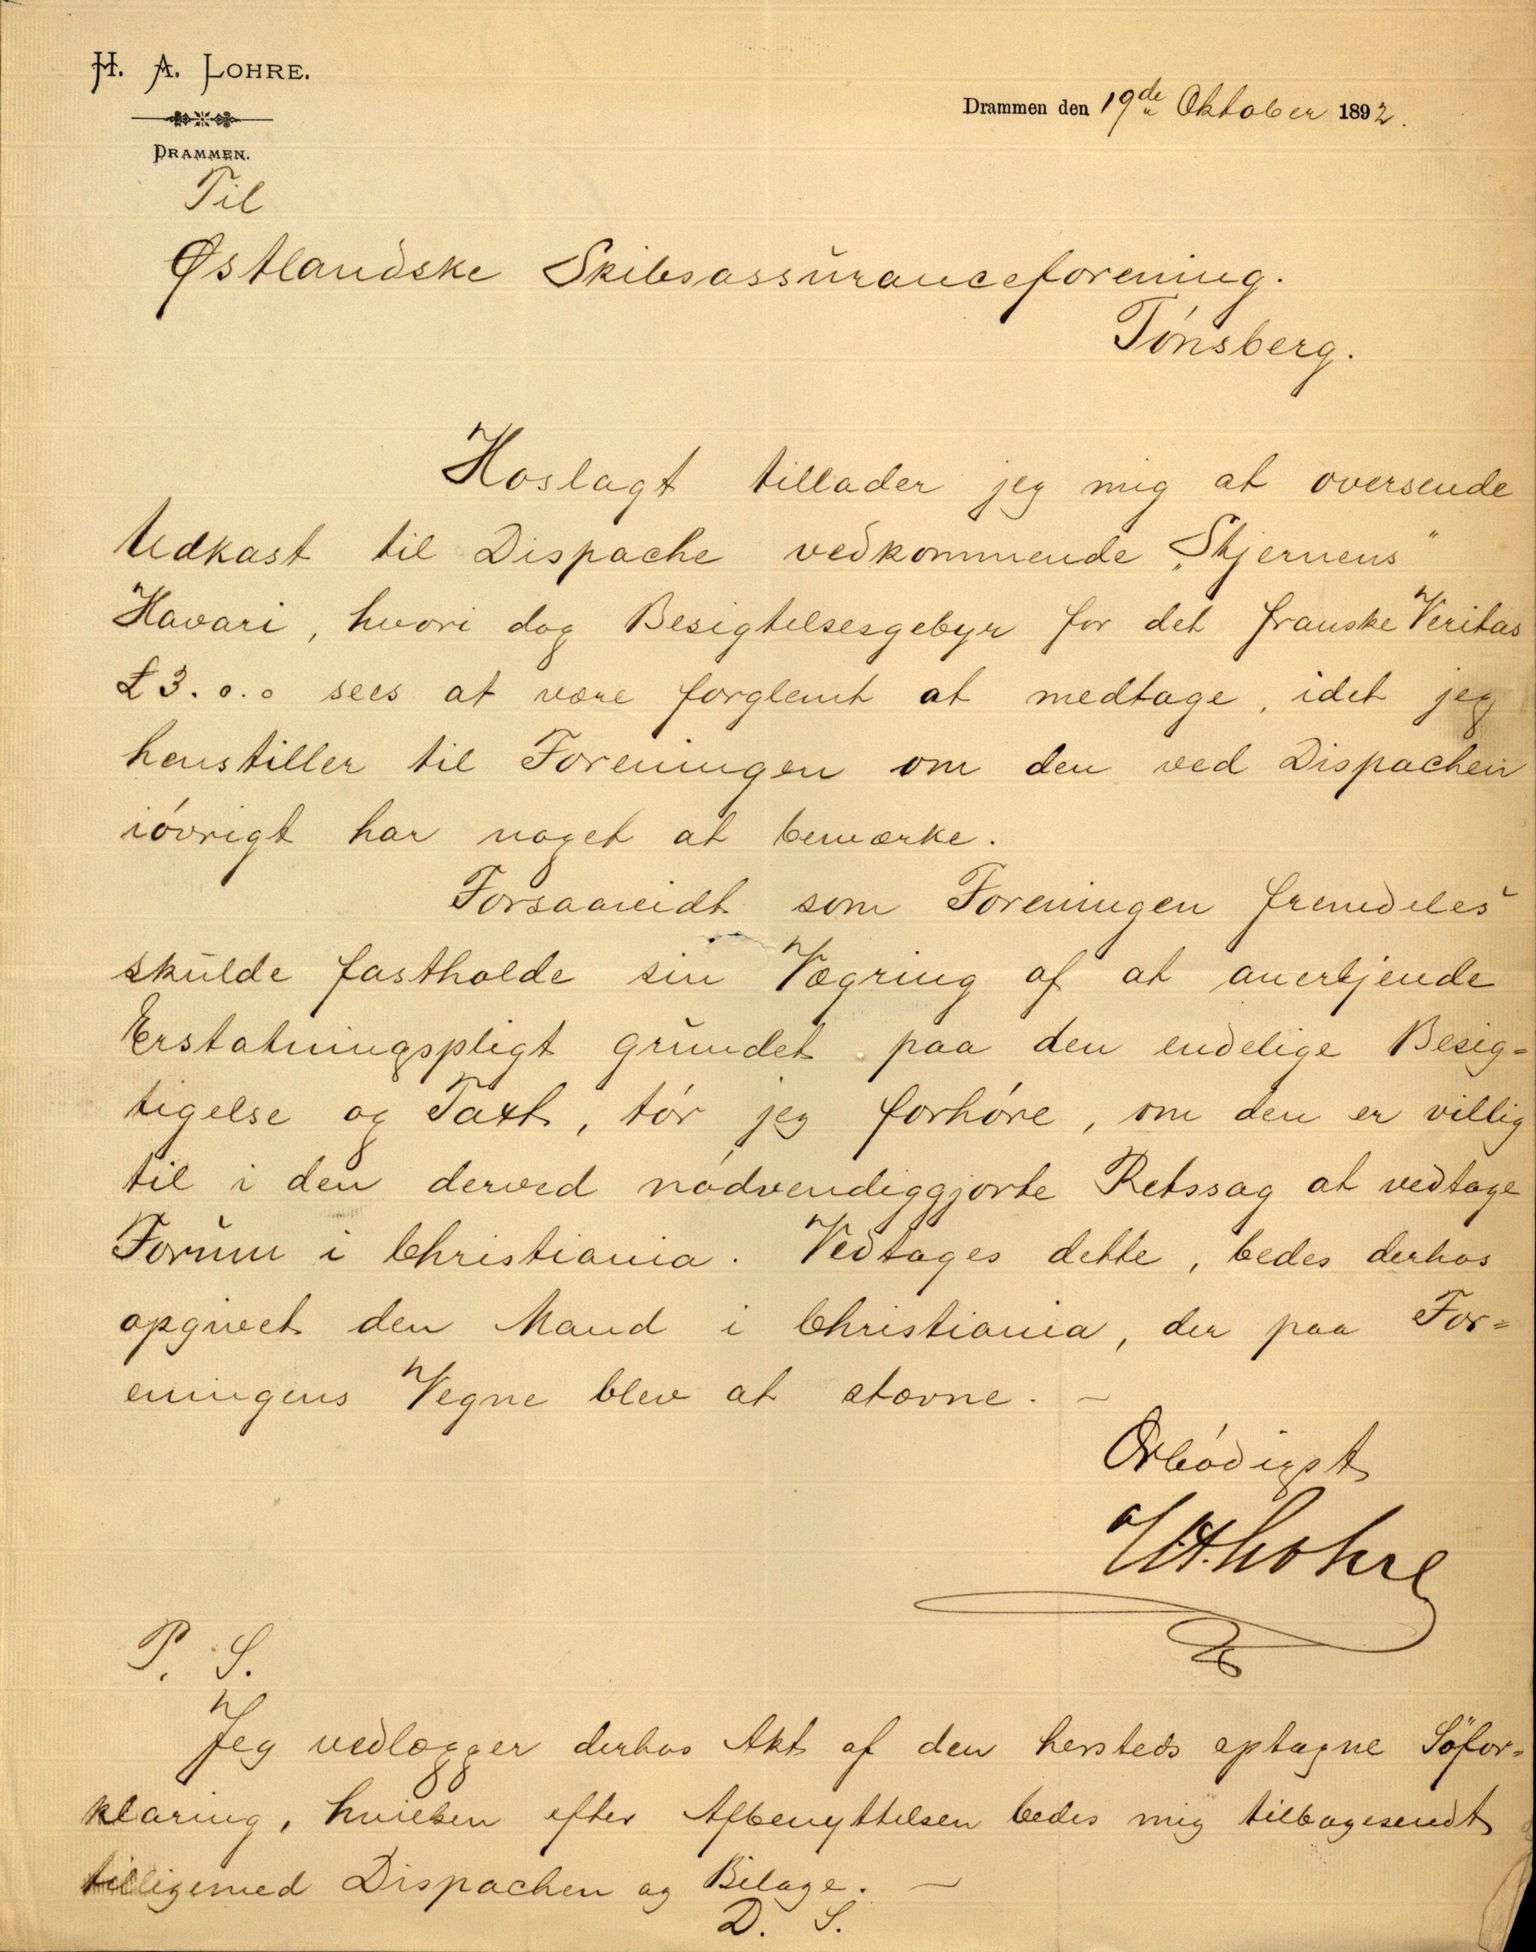 H. A. LOHRE.
DRAMMEN.
Drammen den 19de Oktober 1892.
Til
Østlandske Skibsassuranceforening.
Tónsberg.
Hoslagt tillader jeg mig at oversende
Udkast til Dispache vedkommende „Stjernens“
Havari, hvori dog Besigtelsesgebyr for det franske Veritas
£ 3. o. o sees at være forglemt at medtage, idet jeg
henstiller til Foreningen om den ved Dispachen
ióvrigt har noget at bemærke.
Forsaavidt som Foreningen fremdeles
skulde fastholde sin Vægring af at anerkjende
Erstatningspligt grundet paa den endelige Besig=
tigelse og Taxt, tór jeg forhóre, om den er villig
til i den derved nódvendiggjorte Retssag at vedtage
Forum i Christiania. Vedtages dette, bedes derhos
opgivet den Mand i Christiania, der paa For=
eningens Vegne blev at stævne. —
Ærbódigst
HA Lohre
P. S.
Jeg vedlægger derhos Akt af den hersteds optagne Söfor=
klaring, hvilken efter Afbenyttelsen bedes mig tilbagesendt
tilligemed Dispachen og Bilage. —
D. S.